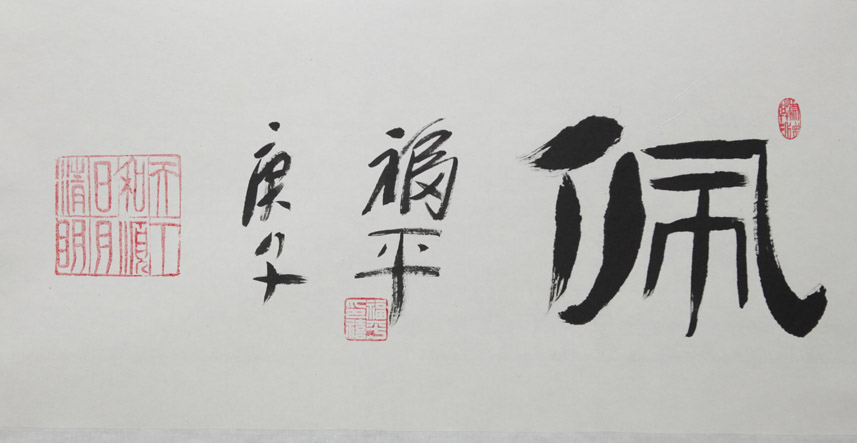 佩
福平
庚
天下
和順
日月
清明